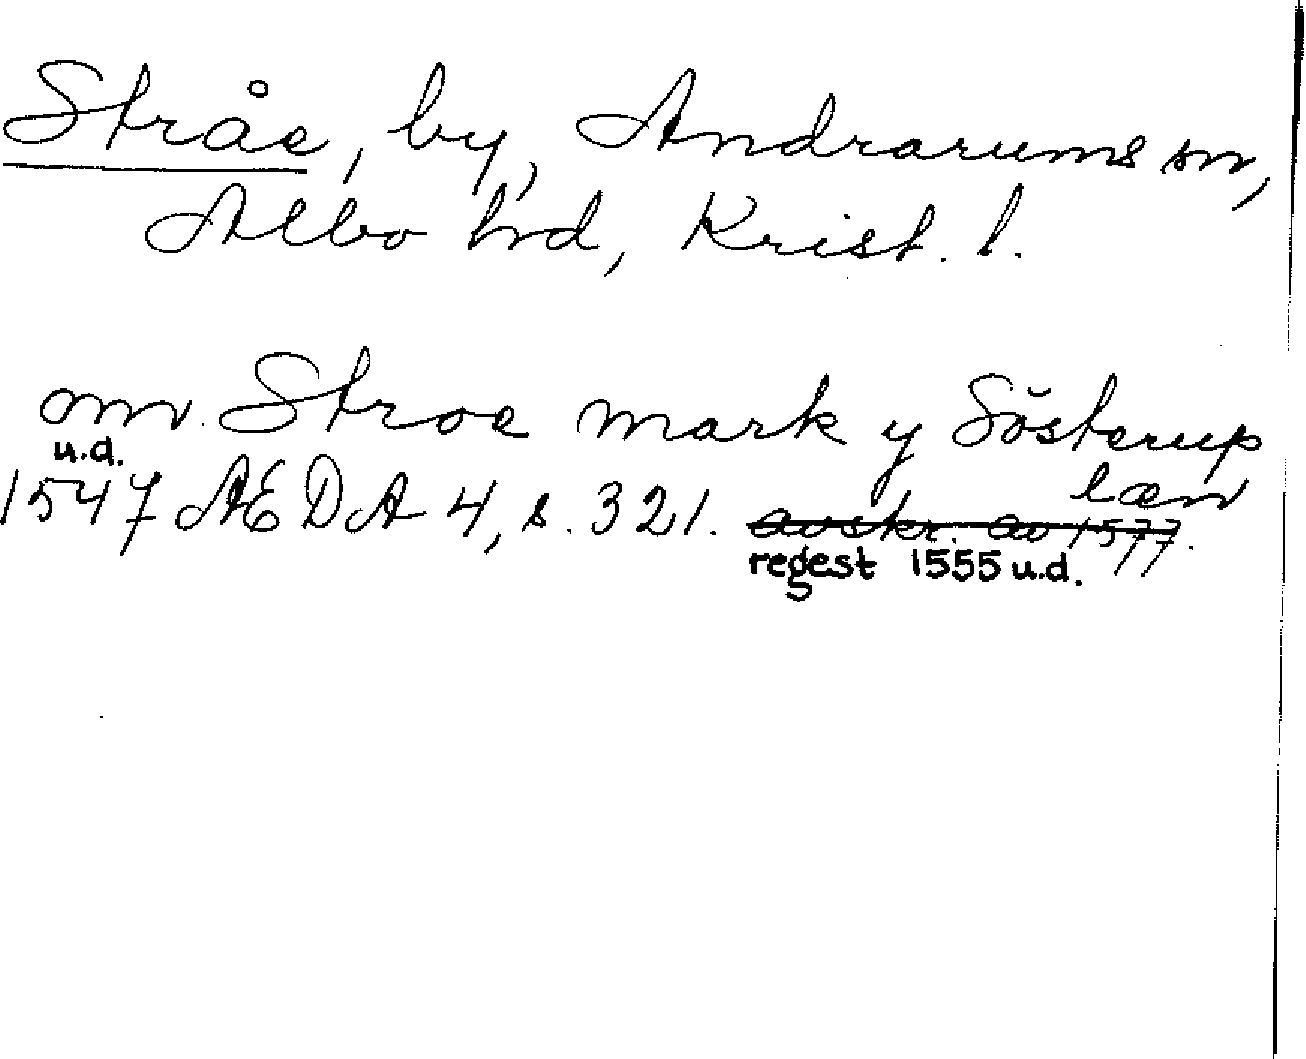 Stråe, by, Andrarums sn,
Albo hd, Krist. l.
om Stroe mark y Sösterup
læn
u.d.
1547 AEDA 4, s. 321. avskr. av 1577.
regest 1555 u.d.